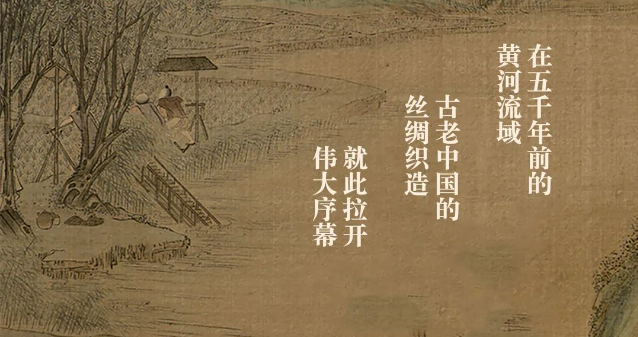 在五千年前的
黄河流域
古老中国的
丝绸织造
就此拉开
伟大序幕